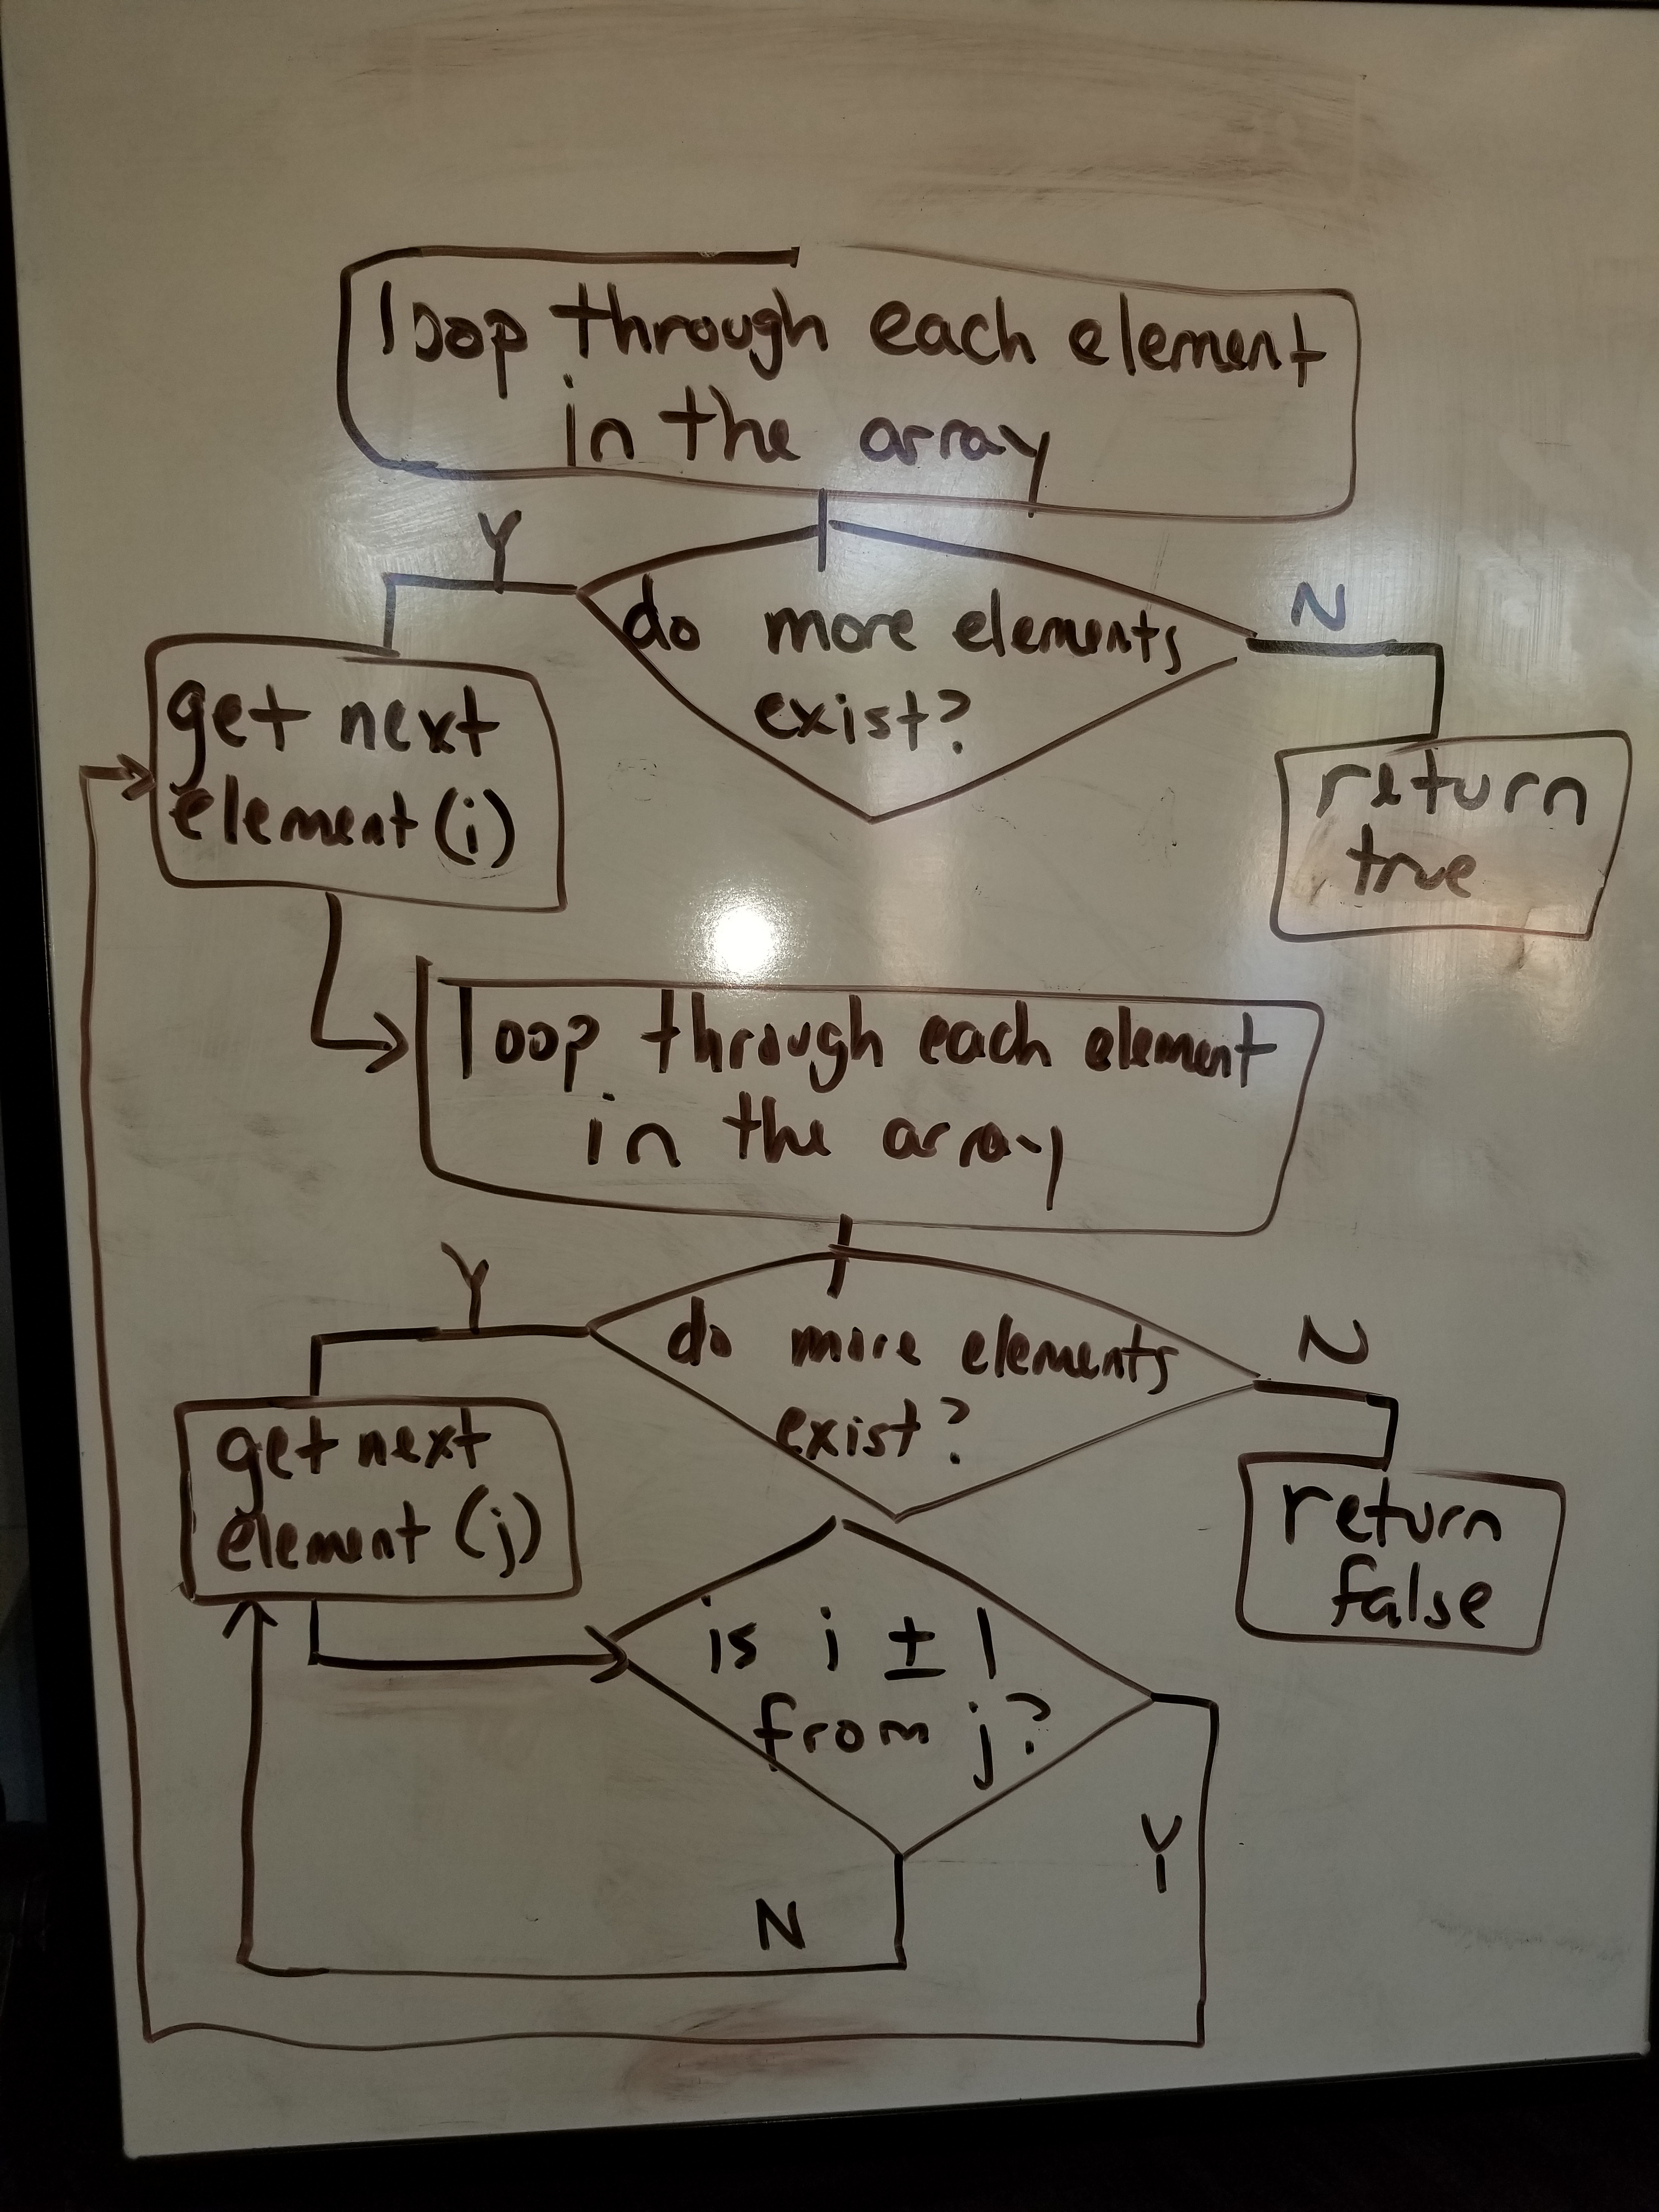 loop through each element
in the array
Y
do more elements
exist?
N
get next
element (i)
return
true
loop through each element
in the array
Y
do more elements
exist?
N
get next
element (j)
return
false
is i ± 1
from j?
Y
N